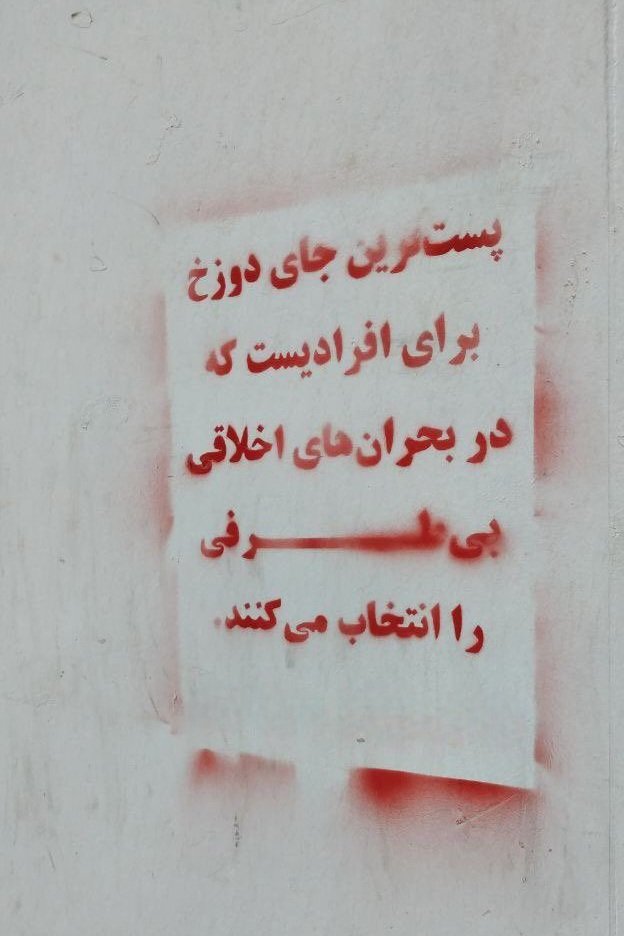 پست‌ترین جای دوزخ
برای افرادیست که
در بحران‌های اخلاقی
بی‌طـــــــرفی
را انتخاب می‌کنند.